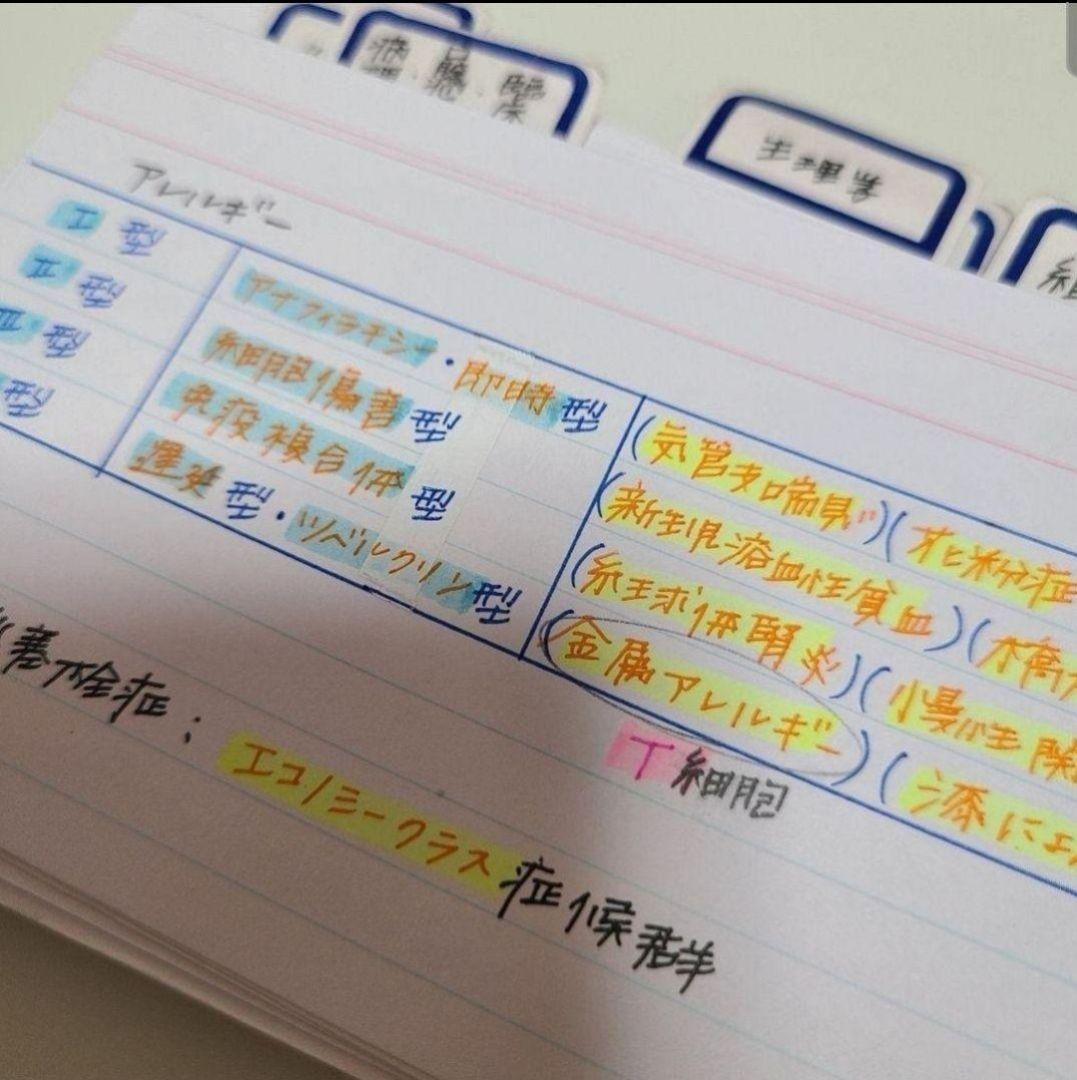 生理学
アレルギー
I 型 アナフィラキシー・即時型 (気管支喘息)(花粉症
II 型 細胞傷害型 (新生児溶血性貧血)(橋
III 型 免疫複合体型 (糸球体腎炎)(慢性
型 遅発型・ツベルクリン型 (金属アレルギー)(漆に
T細胞
塞栓症:エコノミークラス症候群